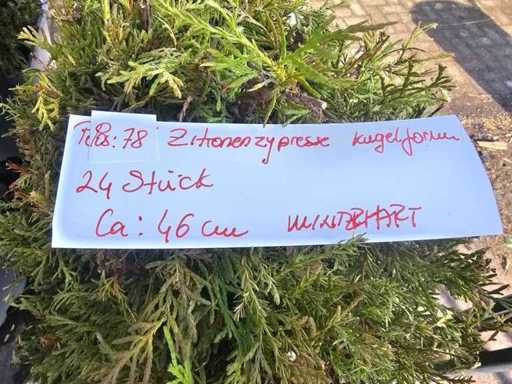 Pos: 78 Zitronenzypresse Kugelform
24 Stück
Ca: 46 cm